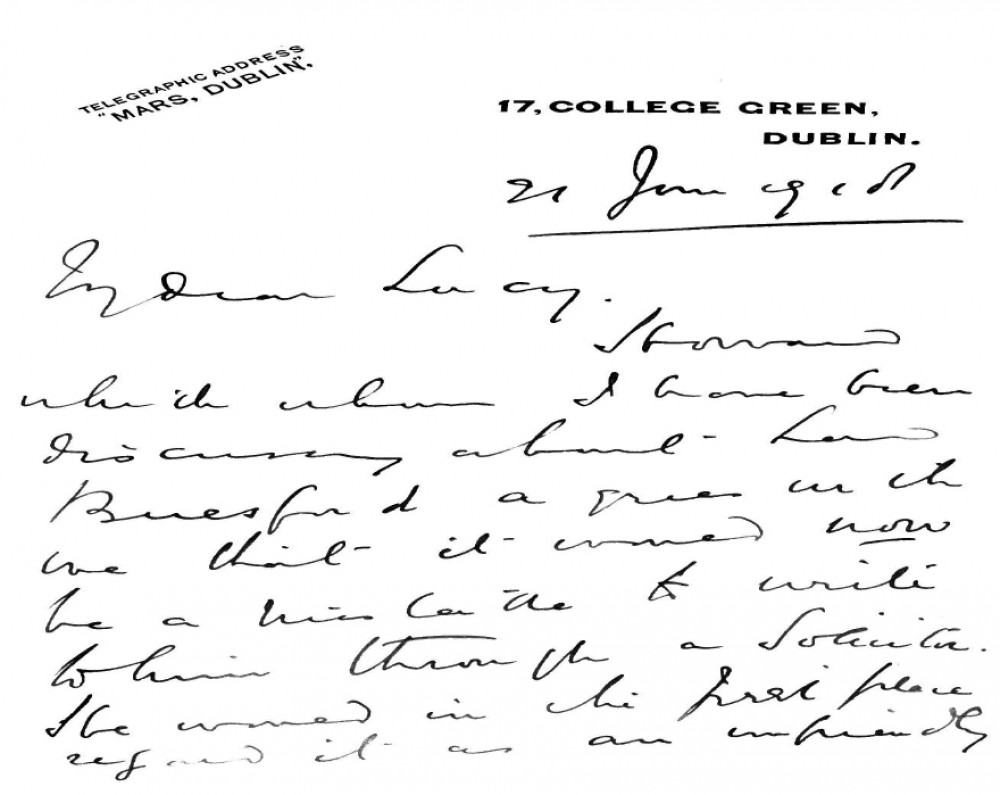 TELEGRAPHIC ADDRESS
"MARS, DUBLIN".
17, COLLEGE GREEN,
DUBLIN.
21 June 1918
My dear Lucy.
Howard
which whom I have been
discussing about Lord
Beresford agrees with
me that it would now
be a mistake to write
to him through a Solicitor.
He would in the first place
regard it as an unfriendly